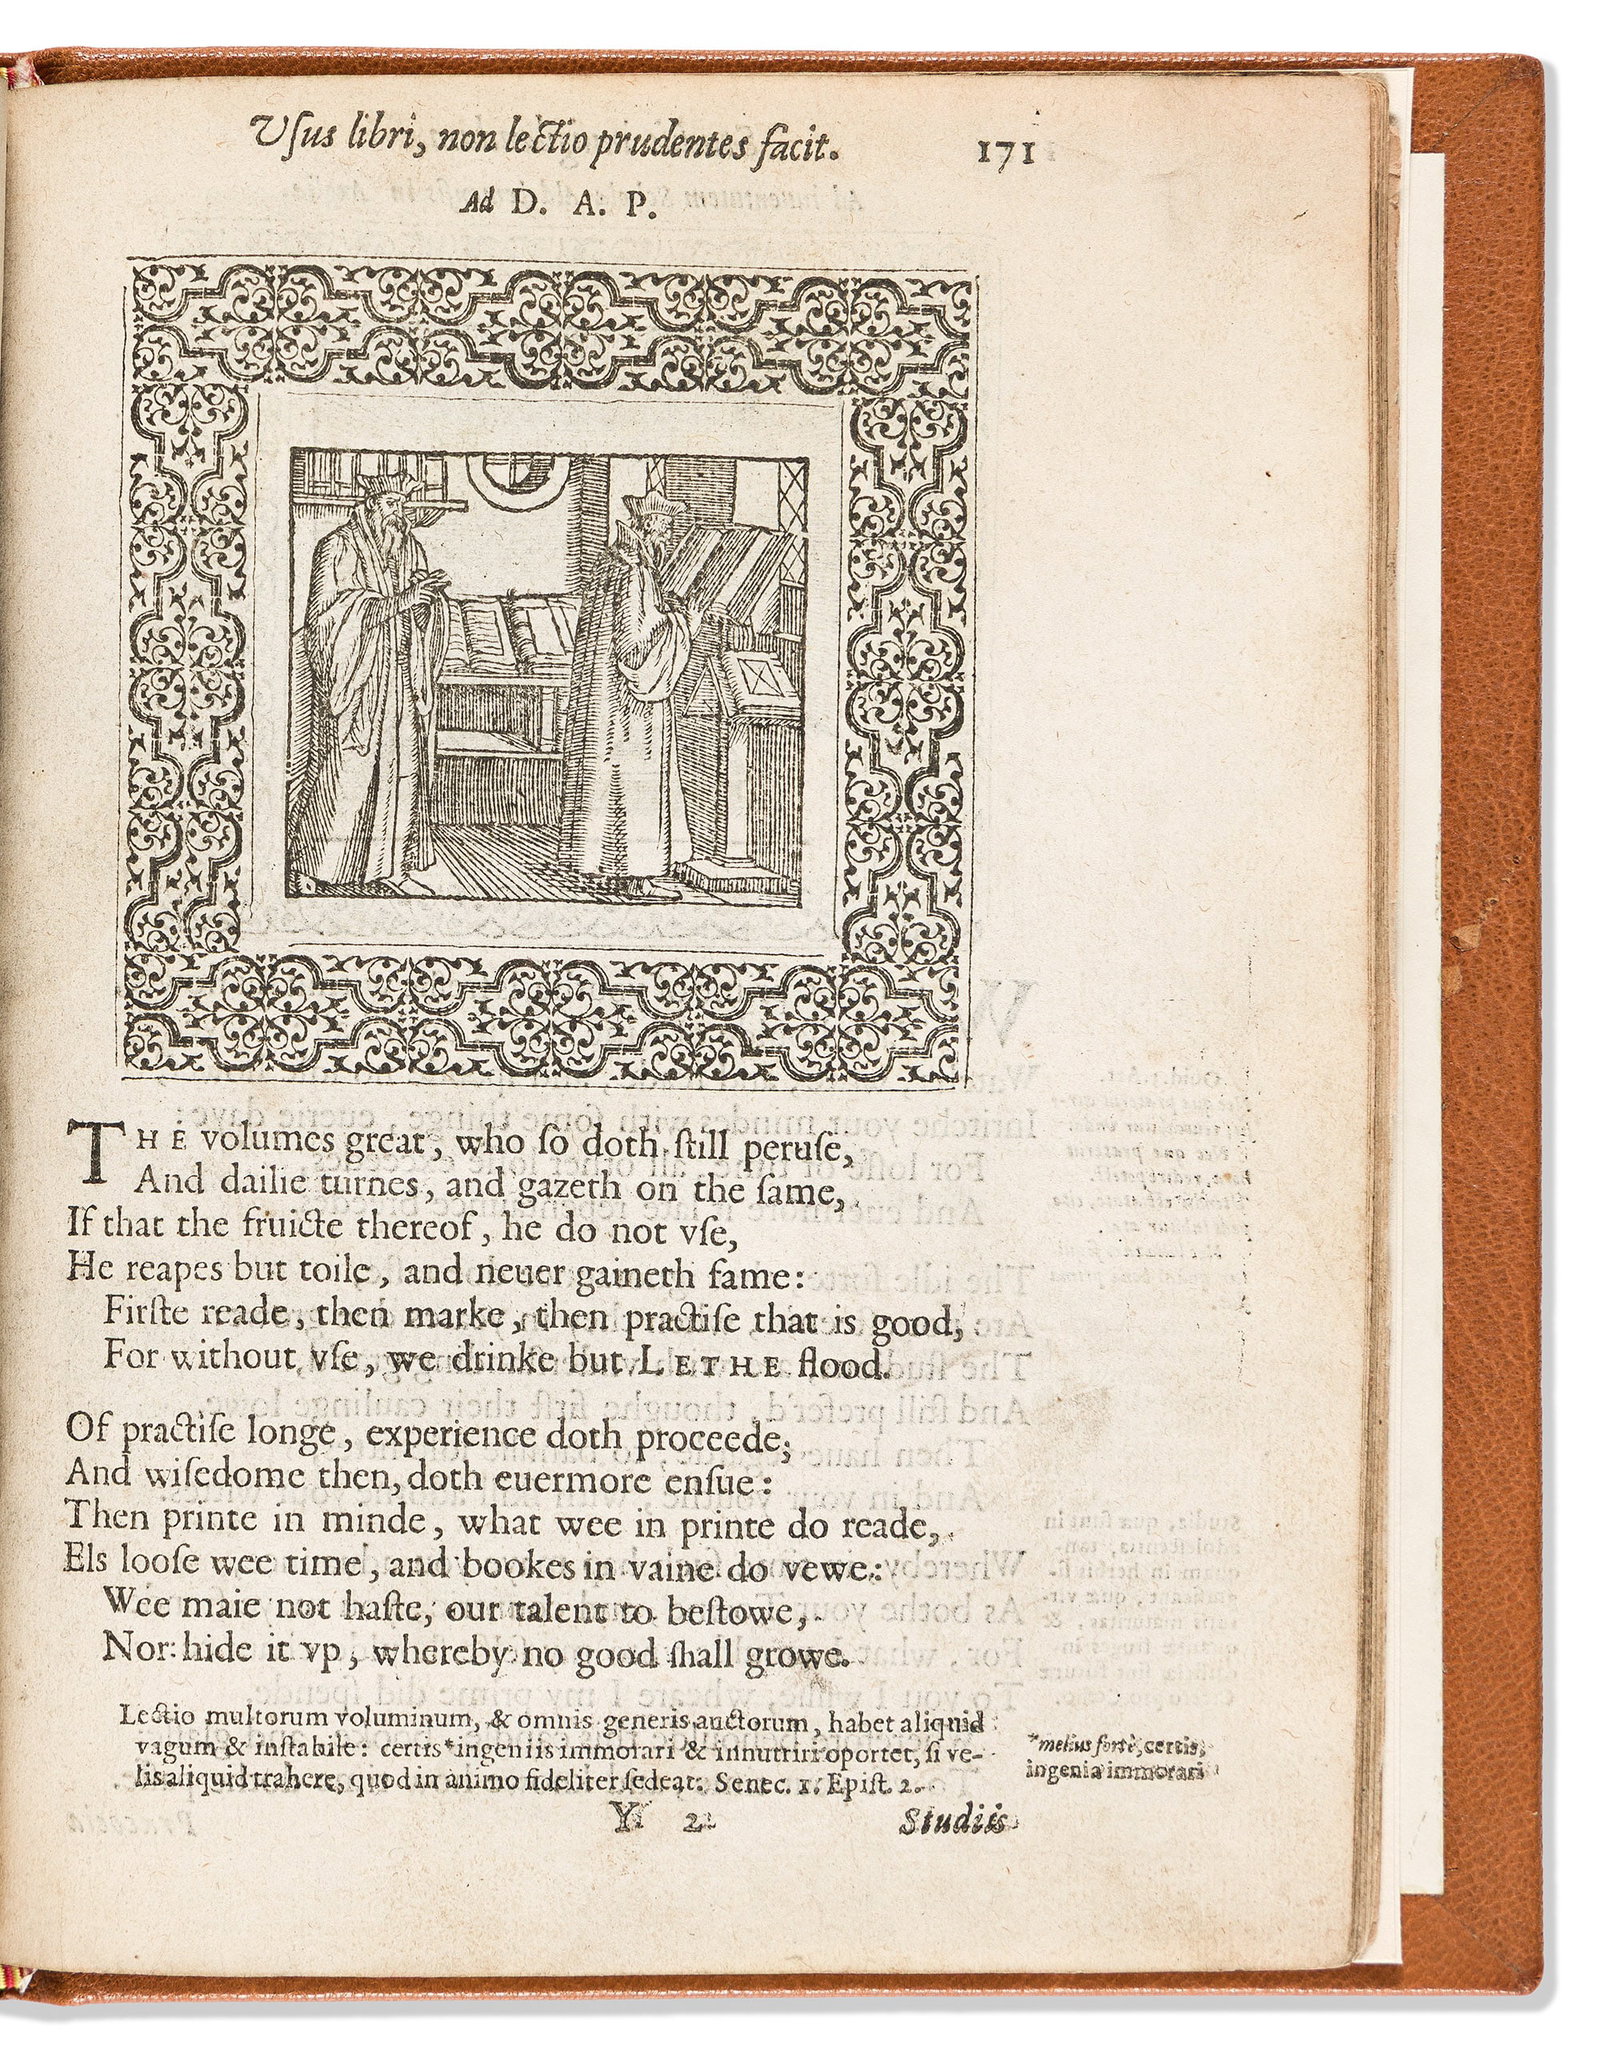 Vſus libri, non lectio prudentes facit.
171
Ad D. A. P.
THE volumes great, who ſo doth ſtill peruſe,
And dailie turnes, and gazeth on the ſame,
If that the fruicte thereof, he do not vſe,
He reapes but toile, and neuer gaineth fame:
Firſte reade, then marke, then practiſe that is good,
For without vſe, we drinke but LETHE flood.
Of practiſe longe, experience doth proceede;
And wiſedome then, doth euermore enſue:
Then printe in minde, what wee in printe do reade,
Els looſe wee time, and bookes in vaine do vewe:
Wee maie not haſte, our talent to beſtowe,
Nor hide it vp, whereby no good ſhall growe.
Lectio multorum voluminum, & omnis generis auctorum, habet aliquid
vagum & inſtabile: certis*ingeniis immorari & innutriri oportet, ſi ve-
lis aliquid trahere, quod in animo fideliter ſedeat. Senec. 1. Epiſt. 2.
*melius fortè, certis,
ingenia immorari
Y 2
Studiis